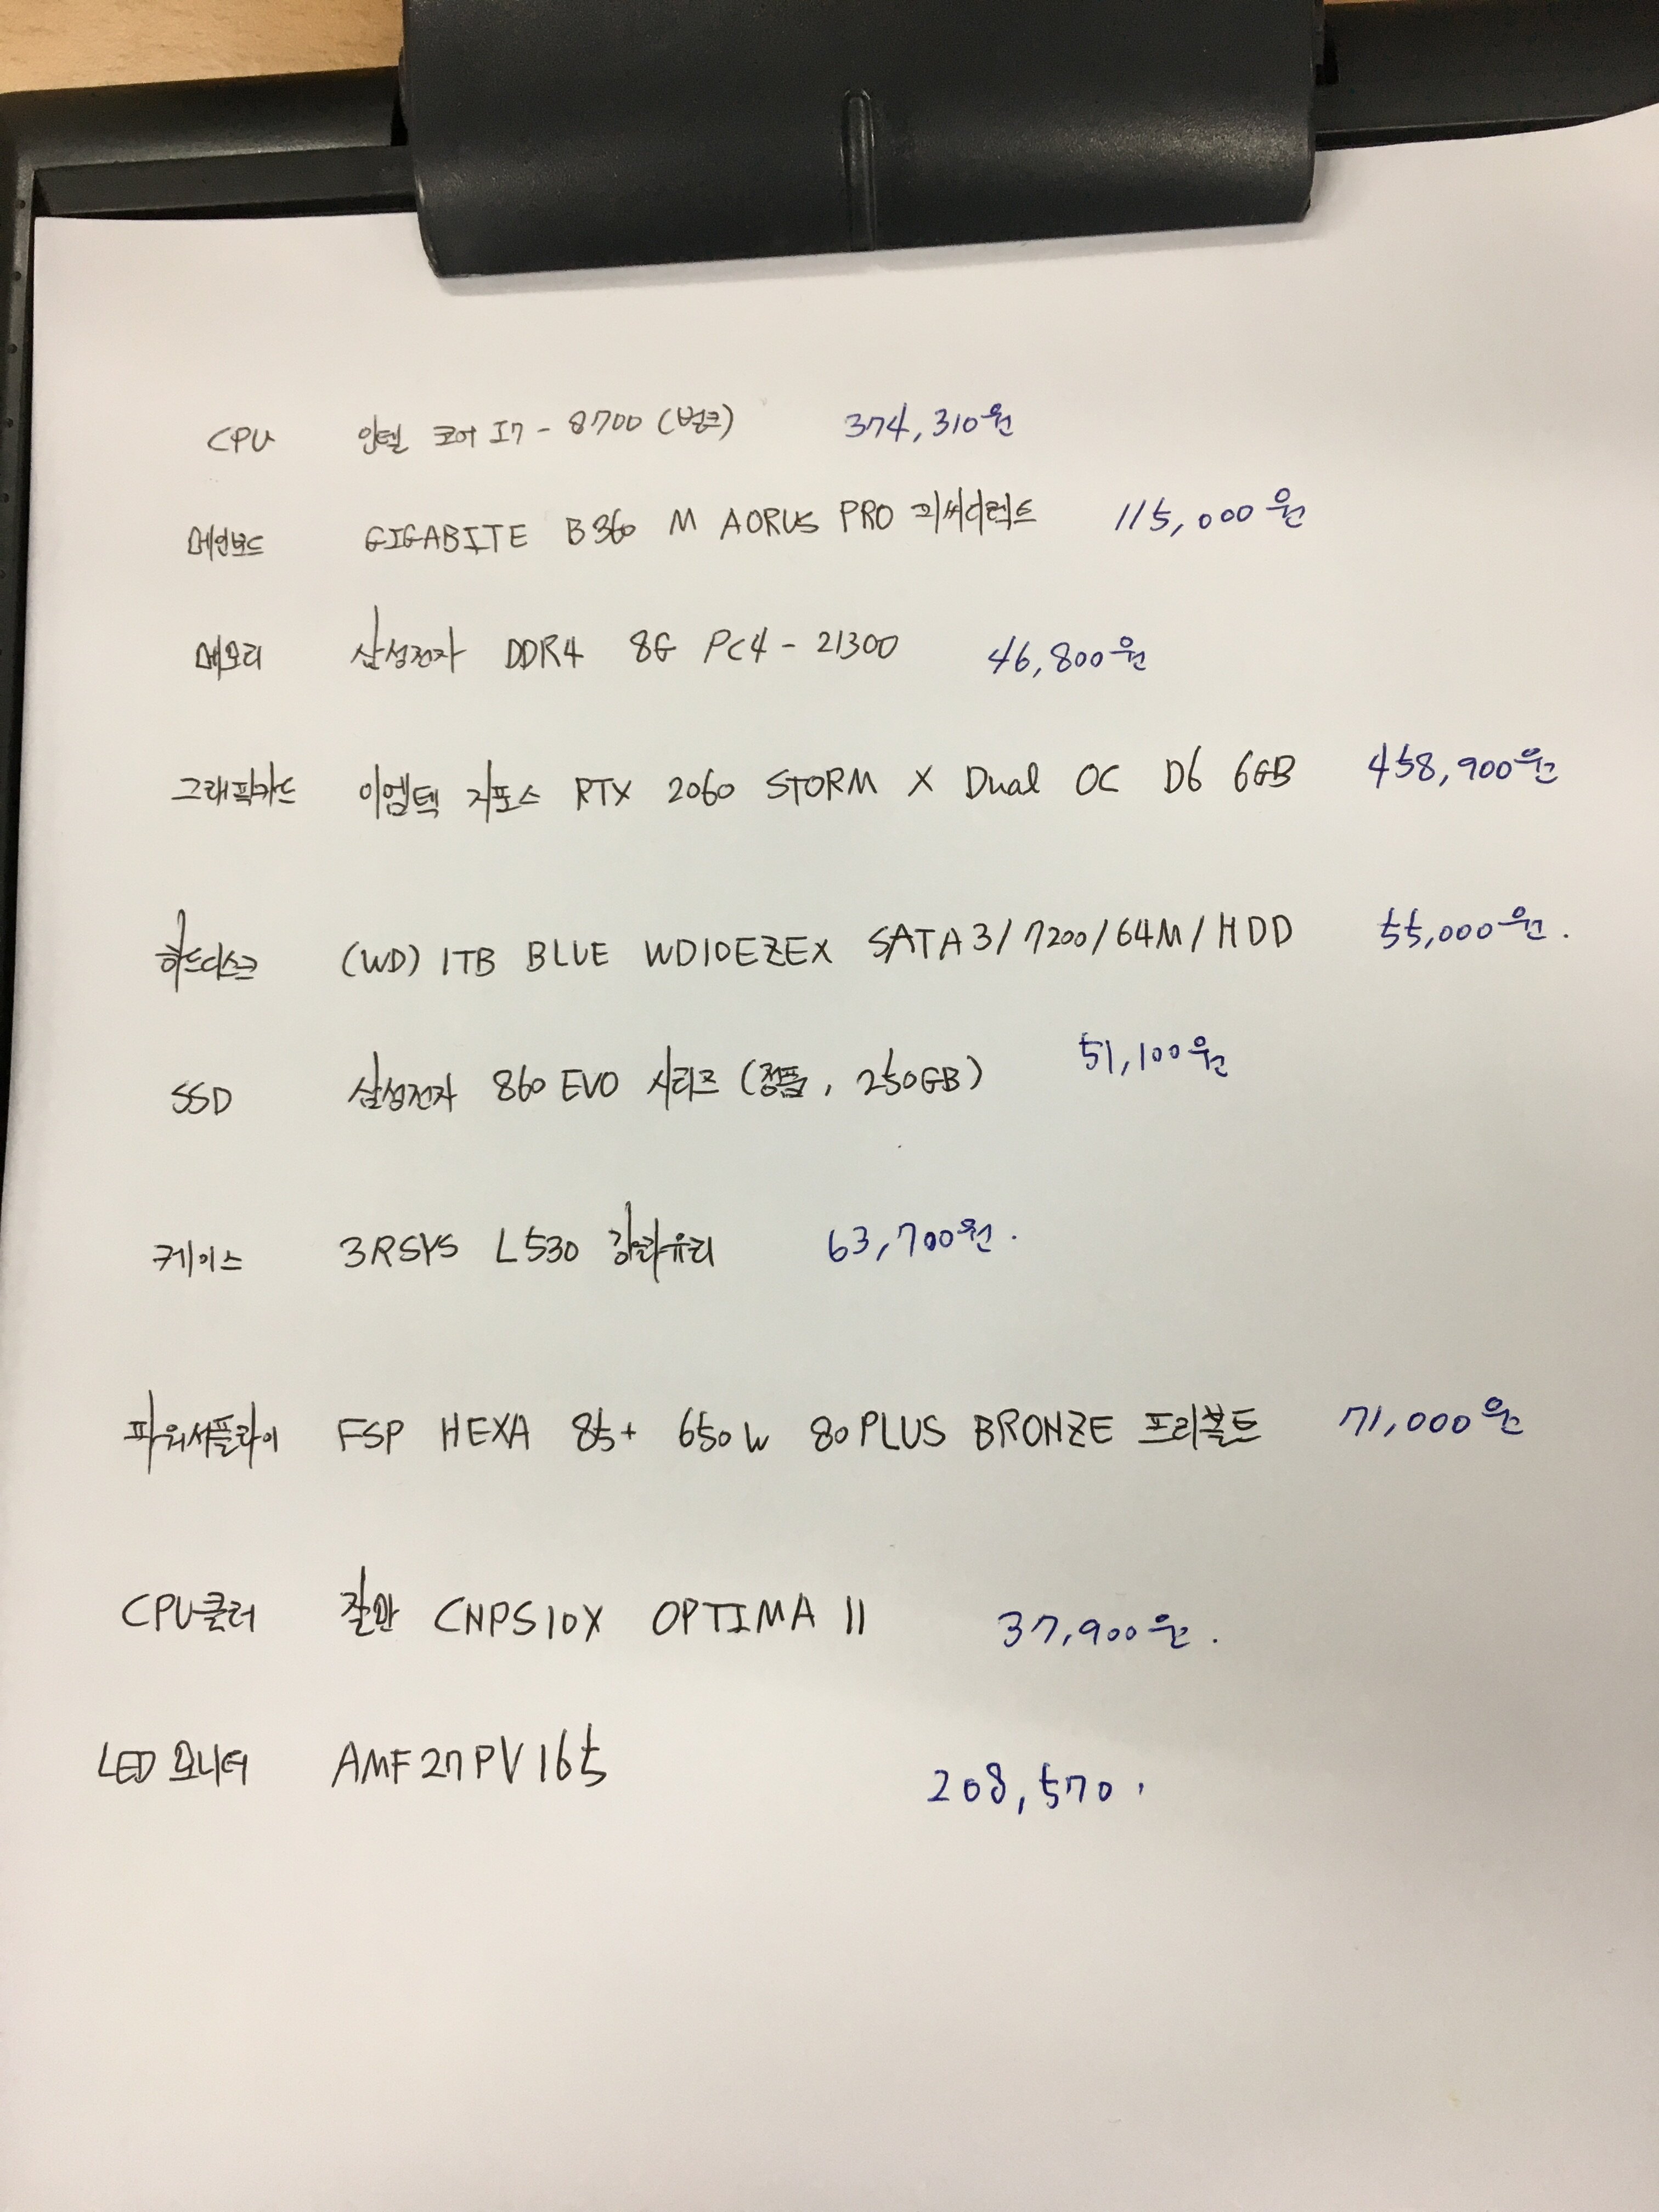 CPU 인텔 코어 I7 - 8700 (벌크) 374,310원
메인보드 GIGABITE B360 M AORUS PRO 피씨디렉트 115,000원
메모리 삼성전자 DDR4 8G PC4 - 21300 46,800원
그래픽카드 이엠텍 지포스 RTX 2060 STORM X Dual OC D6 6GB 458,900원
하드디스크 (WD) 1TB BLUE WD10EZEX SATA3/7200/64M/HDD 55,000원.
SSD 삼성전자 860 EVO 시리즈 (정품, 250GB) 51,100원
케이스 3RSYS L530 강화유리 63,700원.
파워서플라이 FSP HEXA 85+ 650W 80PLUS BRONZE 프리볼트 71,000원
CPU쿨러 잘만 CNPS10X OPTIMA II 37,900원.
LED 모니터 AMF27PV165 208,570.